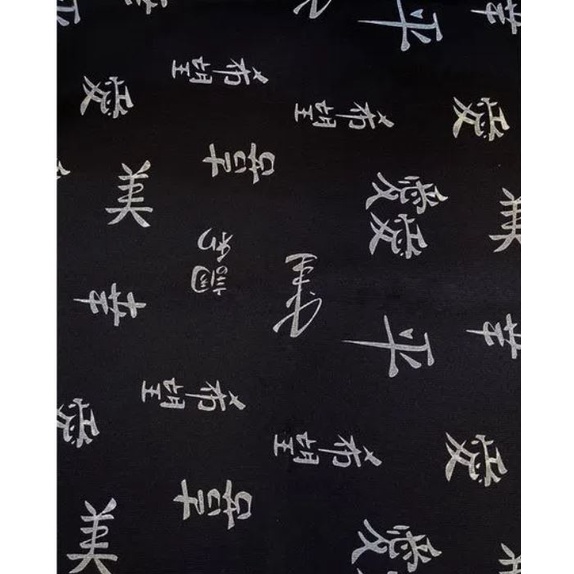 平
幸
希望
愛
希望
愛
美
愛
愛
美
調和
幸
平
幸
希望
愛
希望
愛
美
愛